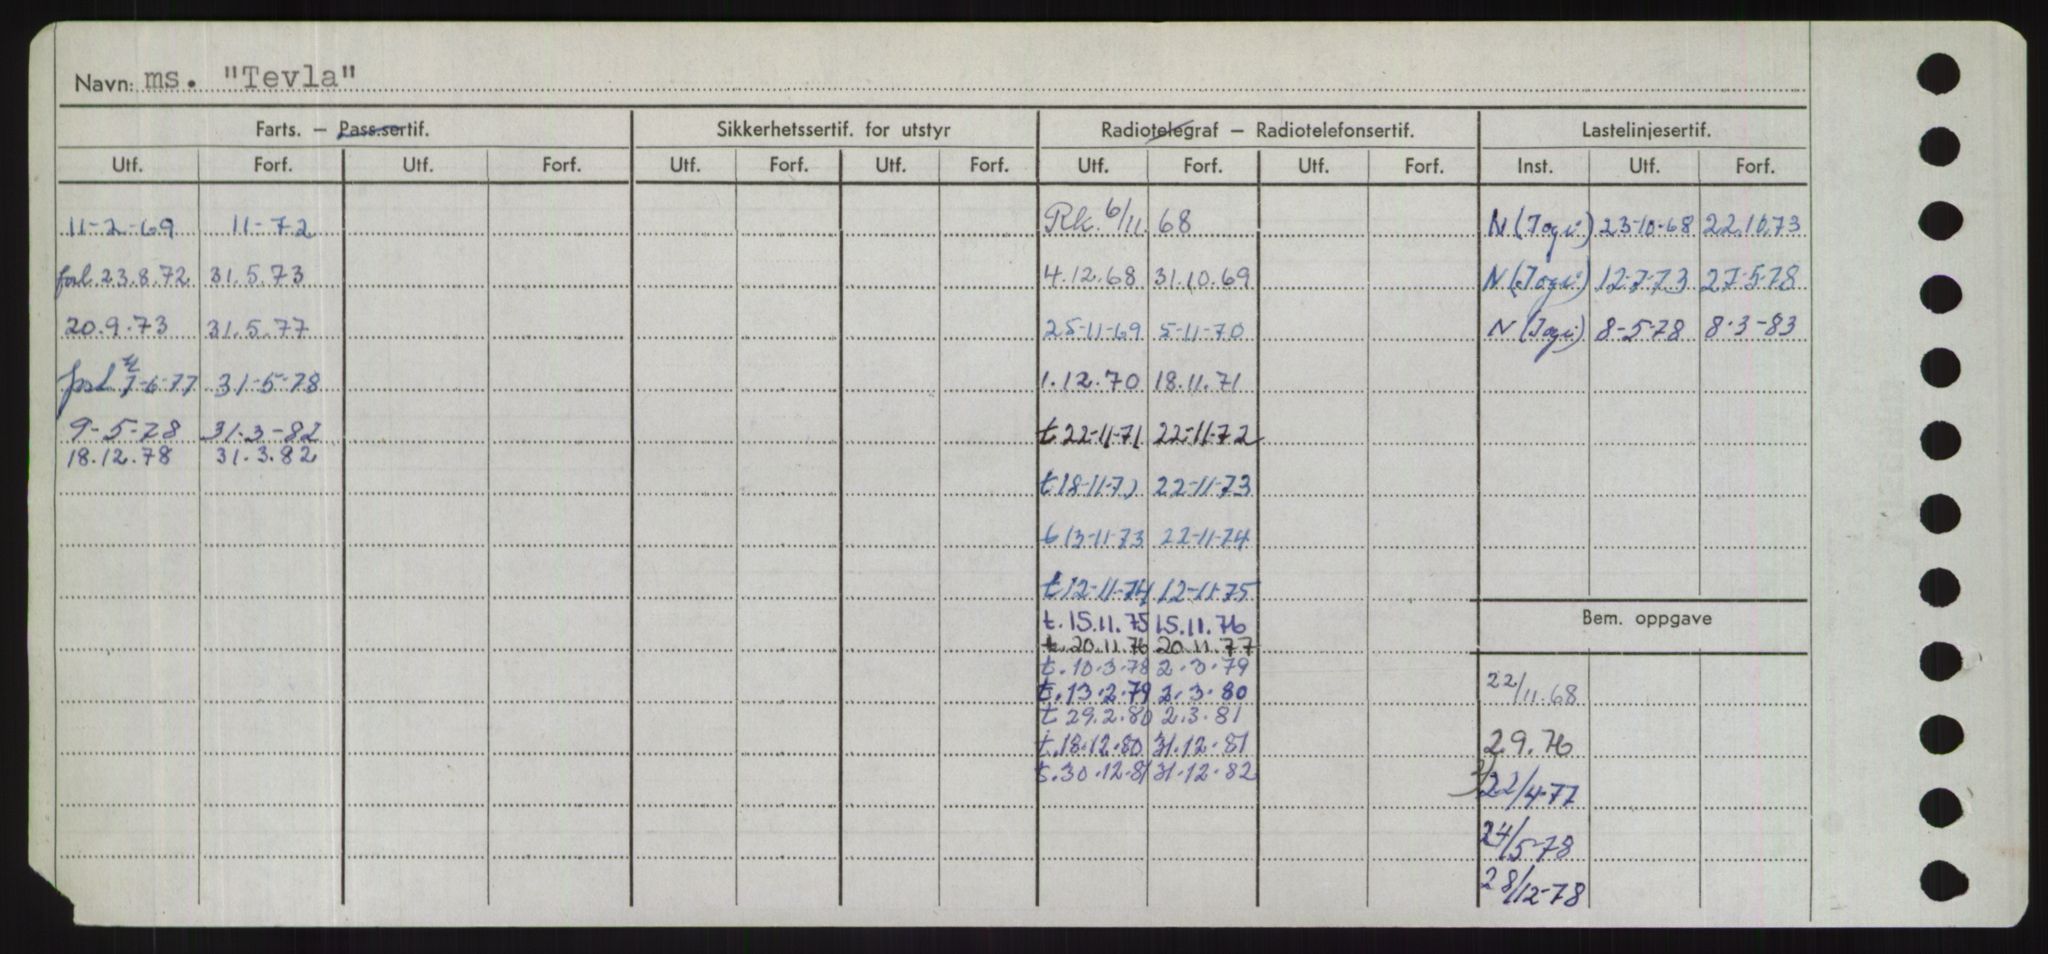 Navn: ms. "Tevla"
Farts. – Pass.sertif. Sikkerhetssertif. for utstyr Radiotelegraf – Radiotelefonsertif. Lastelinjesertif.
Utf. Forf. Utf. Forf. Utf. Forf. Utf. Forf. Utf. Forf. Utf. Forf. Inst. Utf. Forf.
11-2-69 11-72 Rk. 6/11. 68 N 23-10-68 22.10.73
forl. 23.8.72 31.5.73 4.12.68 31.10.69 N 12-7-73 27-5-78
20.9.73 31.5.77 25-11-69 5-11-70 N 8-5-78 8-3-83
forl 7-6-77 31-5-78 1.12.70 18.11.71
9-5-78 31.3-82 t 22-11-71 22-11-72
18.12.78 31.3.82
t 18-11-7 22-11-73
t 13-11-73 22-11-74
t 12-11-74 12-11-75
Bem. oppgave
t. 15.11.75 15.11.76
t. 20.11.76 20.11.77
t. 10.3.78 2.3.79
t. 13.2.79 2.3.80 22/11.68
t 29.2.80 2.3.81
t. 18.12.80 31.12.81 29.76
t. 30.12.81 31.12.82
22/4-77
24/5-78
28/12-78